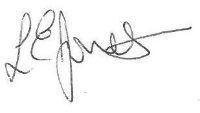 L E Jones